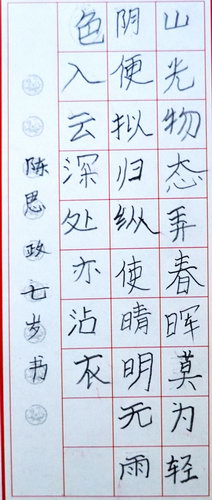 山光物态弄春晖莫为轻
阴便拟归纵使晴明无雨
色入云深处亦沾衣
陈思政七岁书